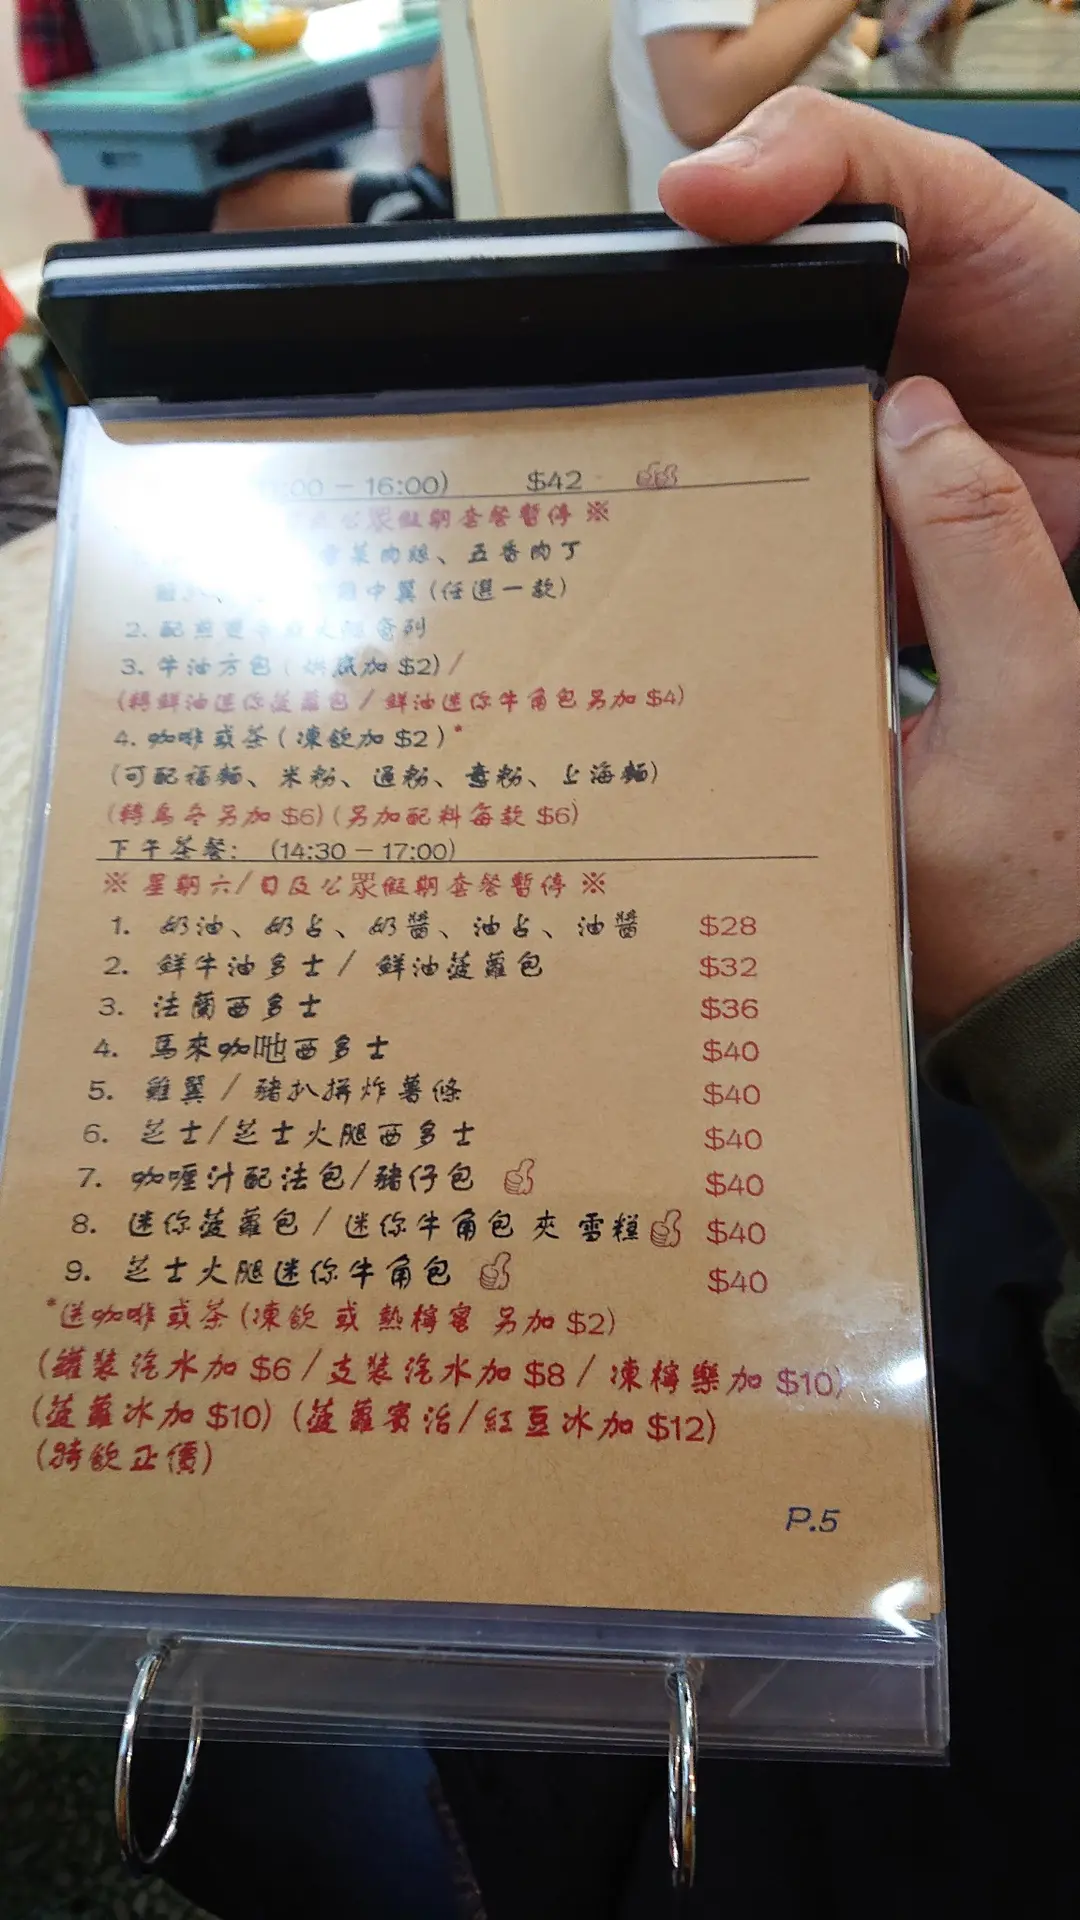 :00 – 16:00) $42
公眾假期套餐暫停 ※
雪菜肉絲、五香肉丁
中翼(任選一款)
2. 配煎
3. 牛油方包(烘底加 $2) /
(轉鮮油迷你菠蘿包 / 鮮油迷你牛角包另加 $4)
4. 咖啡或茶(凍飲加 $2) *
(可配福麵、米粉、通粉、意粉、上海麵)
(轉烏冬另加 $6)(另加配料每款 $6)
下午茶餐: (14:30 – 17:00)
※ 星期六/日及公眾假期套餐暫停 ※
1. 奶油、奶占、奶醬、油占、油醬 $28
2. 鮮牛油多士 / 鮮油菠蘿包 $32
3. 法蘭西多士 $36
4. 馬來咖吔西多士 $40
5. 雞翼 / 豬扒拼炸薯條 $40
6. 芝士/芝士火腿西多士 $40
7. 咖喱汁配法包/豬仔包 $40
8. 迷你菠蘿包 / 迷你牛角包 夾 雪糕 $40
9. 芝士火腿迷你牛角包 $40
*送咖啡或茶(凍飲 或 熱檸蜜 另加 $2)
(罐裝汽水加 $6 / 支裝汽水加 $8 / 凍檸樂加 $10)
(菠蘿冰加 $10) (菠蘿賓治/紅豆冰加 $12)
(特飲正價)
P.5